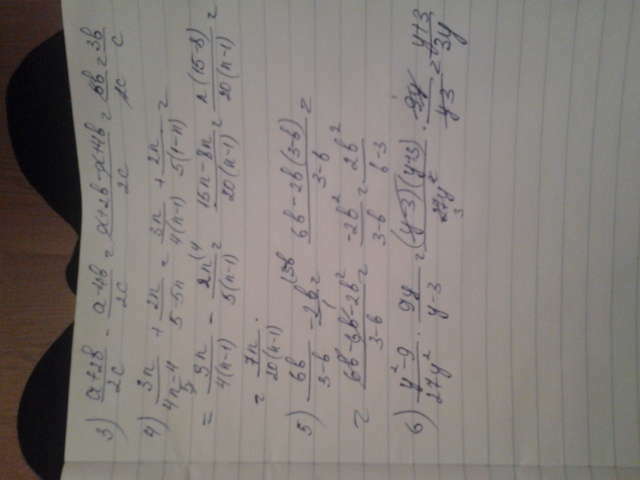 3) (a+2b)/2c - (a-4b)/2c = (a+2b-a+4b)/2c = 6b/2c = 3b/c
4) 3n/(4n-4) + 2n/(5-5n) = 3n/4(n-1) + 2n/5(1-n) =
= 3n/4(n-1) - 2n/5(n-1) = (15n-8n)/20(n-1) = n(15-8)/20(n-1)
= 7n/20(n-1) .
5) 6b/(3-b) - 2b = (6b-2b(3-b))/(3-b) =
= (6b-6b-2b²)/(3-b) = -2b²/(3-b) = 2b²/(b-3)
6) (y²-9)/27y² · 9y/(y-3) = (y-3)(y+3)/27y² · 9y/(y-3) = (y+3)/3y